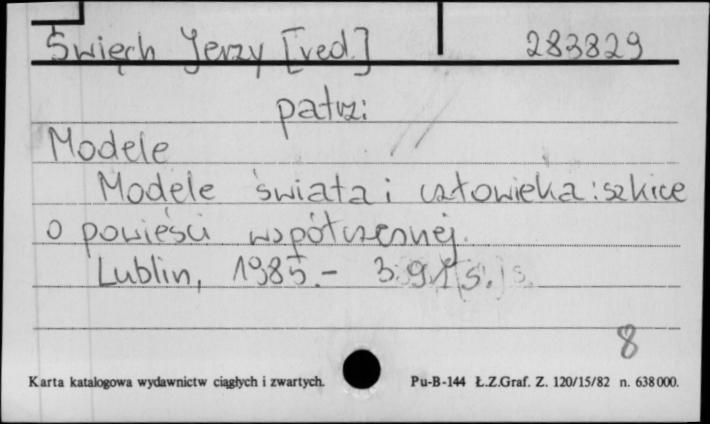 Święch Jerzy [red.] 283829
patrz:
Modele
Modele świata i człowieka: szkice
o powieści współczesnej.
Lublin, 1985.- 391 s.
8
Karta katalogowa wydawnictw ciągłych i zwartych. Pu-B-144 Ł.Z.Graf. Z. 120/15/82 n. 638000.